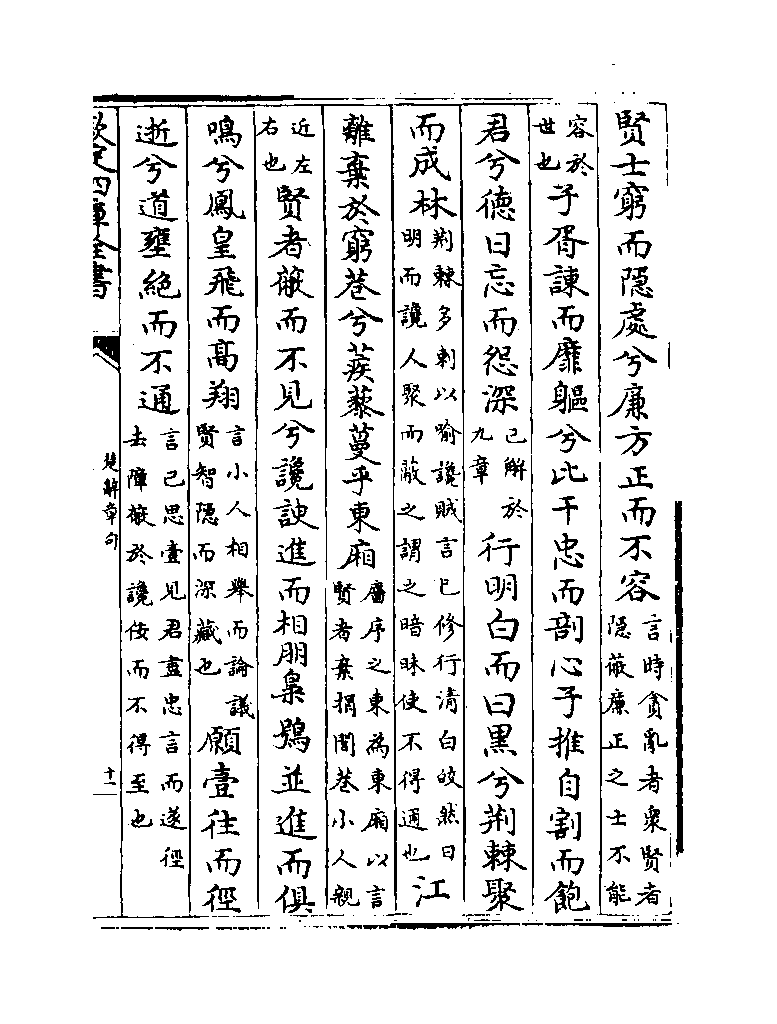 賢士窮而隱處兮廉方正而不容言時貪亂者衆賢者隱蔽廉正之士不能
容於世也子胥諫而靡軀兮比干忠而剖心子推自割而飽
君兮德日忘而怨深已解於九章行明白而曰黑兮荆棘聚
而成林荆棘多刺以喻讒賊言已修行清白皎然日明而讒人聚而蔽之謂之暗昧使不得通也江
離棄於窮巷兮蒺藜蔓乎東廂廧序之東為東廂以言賢者棄捐閭巷小人親
近左右也賢者蔽而不見兮讒諛進而相朋梟鴞並進而俱
鳴兮鳳皇飛而高翔言小人相舉而論議賢智隱而深藏也願壹往而徑
逝兮道壅絶而不通言已思壹見君盡忠言而遂徑去障蔽於讒佞而不得至也
欽定四庫全書
楚辭章句
十一